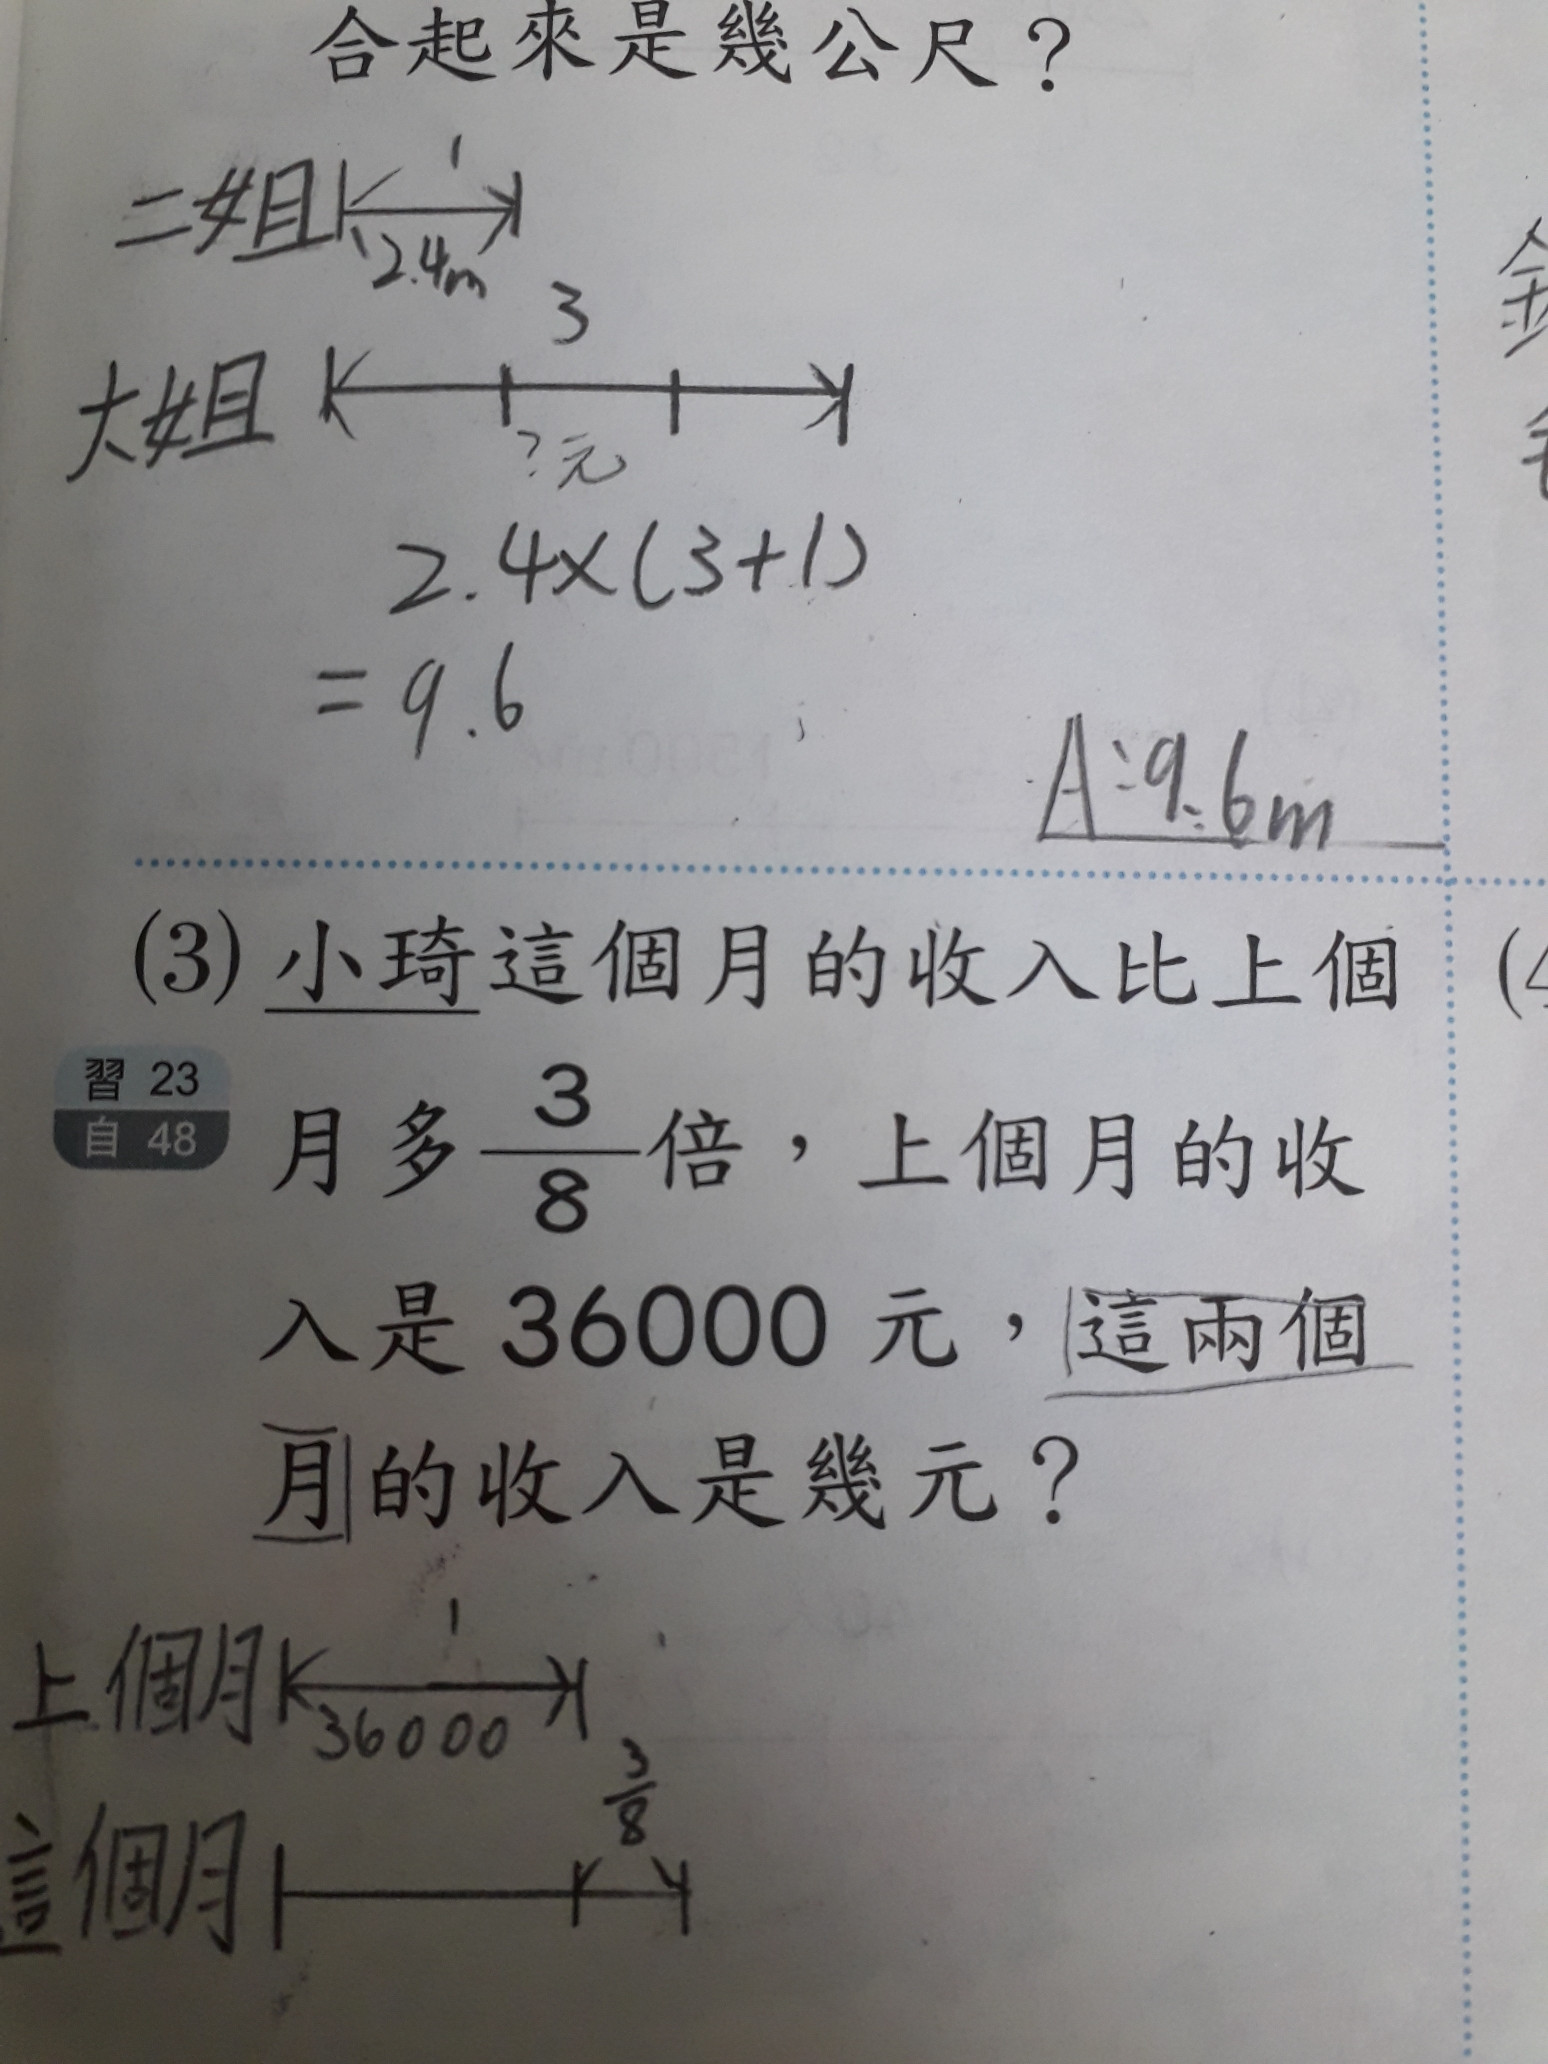 合起來是幾公尺？
二姐 1
2.4m
3
大姐
?元
2.4×(3+1)
=9.6
A:9.6m
(3) 小琦這個月的收入比上個
習 23
自 48
月多3/8倍，上個月的收
入是 36000 元，這兩個
月的收入是幾元？
上個月 1
36000
3/8
這個月
(4